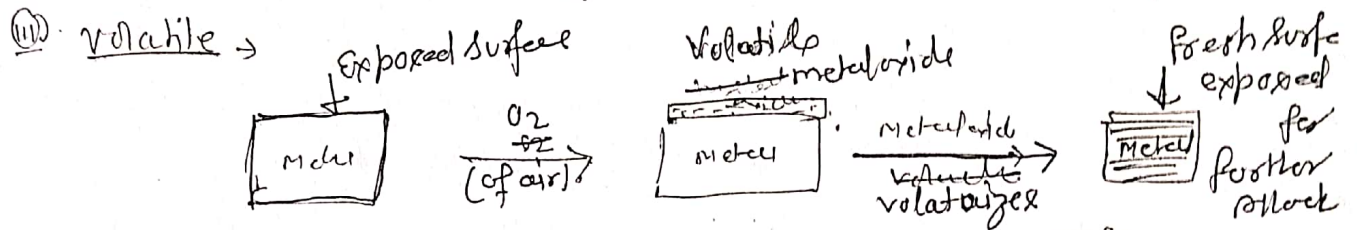 (iii). Volatile →
Exposed Surface
Metal
O2
(of air).
Volatile
metaloxide
Metal
Metaloxid
volataizes
fresh Surfe
exposed
for
further
Attack
Metal